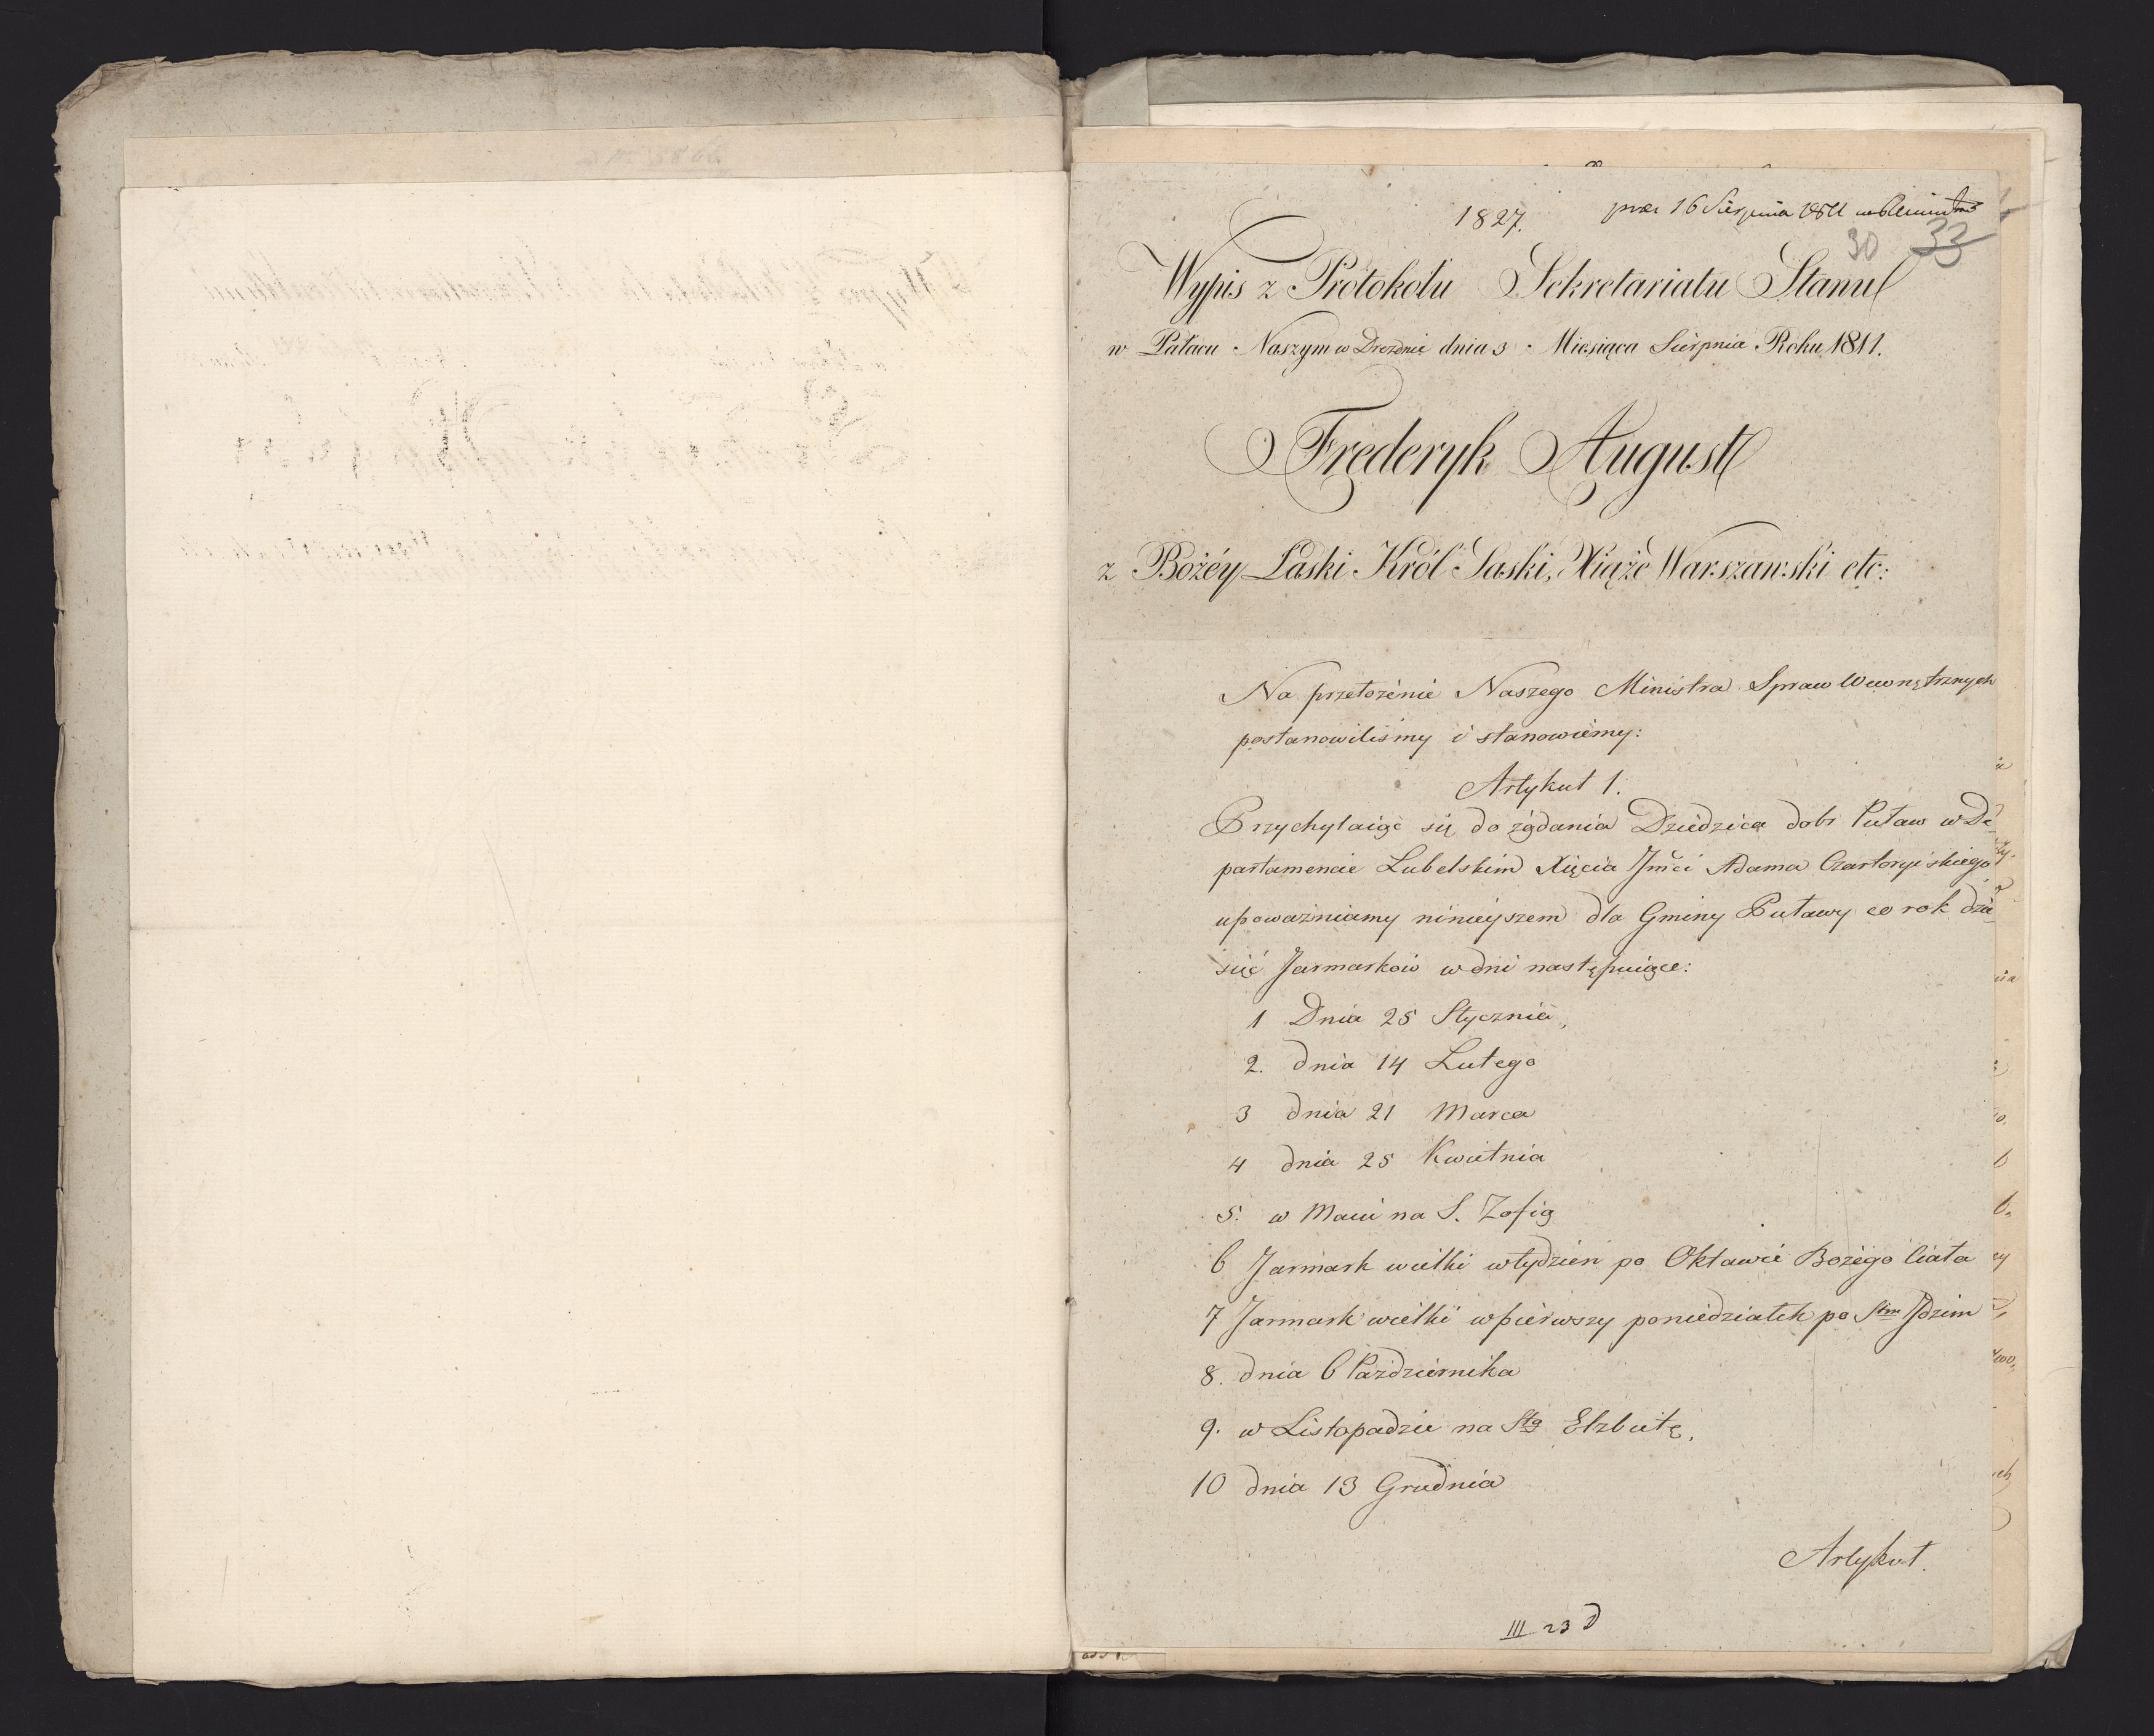 1827.
prae 16 Sierpnia 1811
30 33
Wypis z Protokółu Sekretariatu Stanu
w Pałacu Naszym w Dreźnie dnia 3 Miesiąca Sierpnia Roku 1811.
Frederyk August
z Bożéy Łaski Król Saski, Xiąże Warszawski etc:
Na przełożenie Naszego Ministra Spraw Wewnętrznych
postanowiliśmy i stanowiemy:
Artykuł 1.
Przychylaiąc się do żądania Dziedzica dobr Puław w De-
partamencie Lubelskim Xięcia Jmci Adama Czartoryiskiego
upoważniamy ninieyszem dla Gminy Puławy co rok dzie-
sięć Jarmarków w dni następuiące:
1 Dnia 25 Stycznia,
2. dnia 14 Lutego
3 dnia 21 Marca
4 dnia 25 Kwietnia
5. w Maiu na S. Zofią
6 Jarmark wielki w tydzień po Oktawie Bożego Ciała
7 Jarmark wielki w pierwszy poniedziałek po Stm Jdzim
8. dnia 6 Października
9. w Listopadzie na Stą Elzbietę.
10 dnia 13 Grudnia
Artykuł.
III 23 D